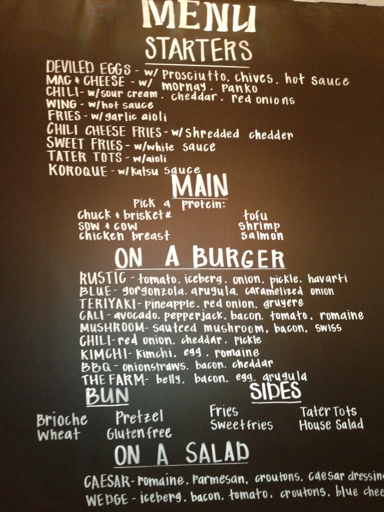 MENU
STARTERS
DEVILED EGGS - w/ prosciutto, chives, hot sauce
MAC + CHEESE - w/ mornay, panko
CHILI - w/sour cream, cheddar, red onions
WING - w/hot sauce
FRIES - w/garlic aioli
CHILI CHEESE FRIES - w/shredded chedder
SWEET FRIES - w/white sauce
TATER TOTS - w/aioli
KOROQUE - w/katsu sauce
MAIN
Pick a protein:
chuck + brisket tofu
sow + cow shrimp
chicken breast salmon
ON A BURGER
RUSTIC - tomato, iceberg, onion, pickle, havarti
BLUE - gorgonzola, arugula, caramelized onion
TERIYAKI - pineapple, red onion, gruyere
CALI - avocado, pepperjack, bacon, tomato, romaine
MUSHROOM - sauteed mushroom, bacon, swiss
CHILI - red onion, cheddar, pickle
KIMCHI - kimchi, egg, romaine
BBQ - onionstraws, bacon, cheddar
THE FARM - belly, bacon, egg, arugula
BUN SIDES
Brioche Pretzel Fries Tater Tots
Wheat Gluten free Sweet fries House Salad
ON A SALAD
CAESAR - romaine, Parmesan, croutons, caesar dressin
WEDGE - iceberg, bacon, tomato, croutons, blue chee